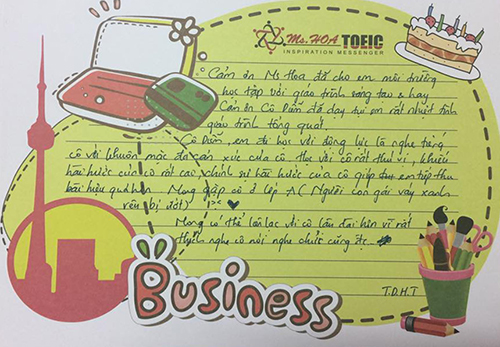 Ms. HOA TOEIC
INSPIRATION MESSENGER
Cảm ơn Ms Hoa đã cho em môi trường
học tập với giáo trình sáng tạo & hay
Cảm ơn Cô Diễn đã dạy tụi em rất nhiệt tình
giáo trình tổng quát.
Cô Diễn, em đi học với động lực là nghe tiếng
cô với khuôn mặc đa cảm xúc của cô thu với cô rất thú vị, khiếu
hài hước của cô rất cao, chính sự hài hước của cô giúp em tiếp thu
bài hiệu quả hơn. Mong gặp cô ở lớp A (Người con gái váy xanh
rêu bị đứt)
Mong có thể lại lạc với cô lâu dài hơn vì rất
thích nghe cô nói nghe chửi cũng đc
Business
T.D.H.T